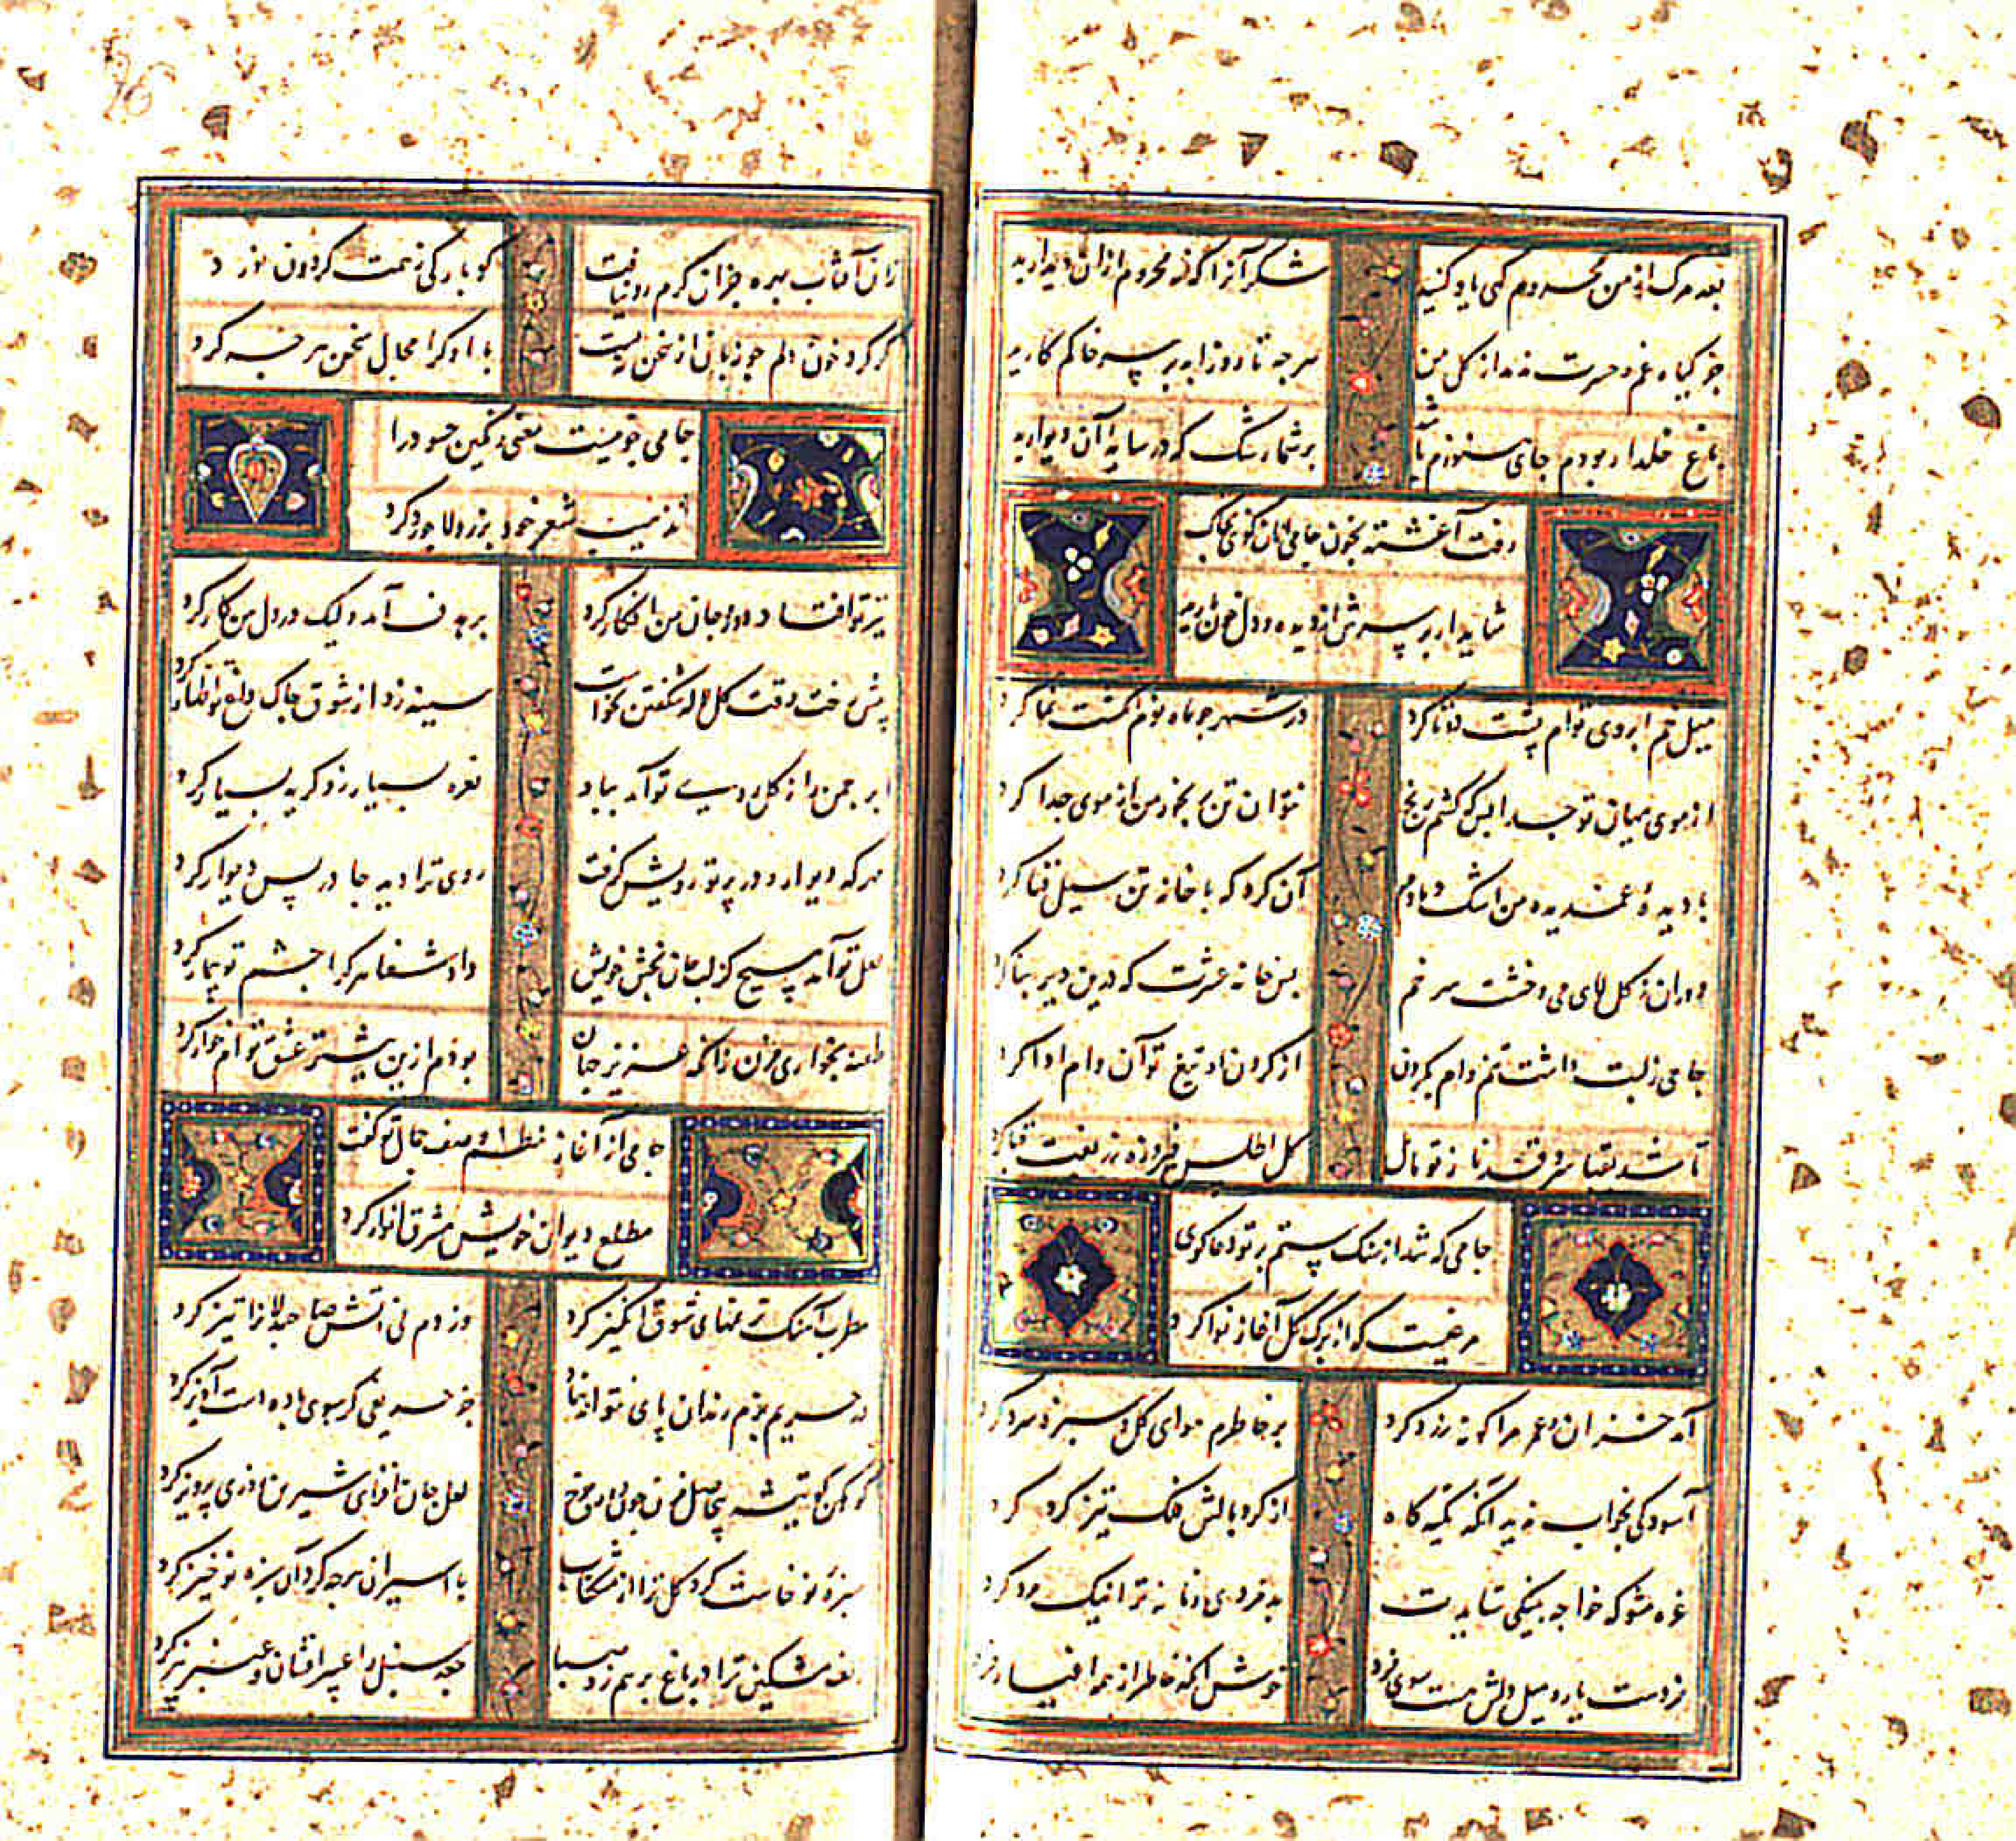 بعد مرک از من محروم کهی یاد کنید شکر آنرا که نه محروم ازان دیدارید
جز کیاه غم و حسرت ندمد از کل من هر چه تا روز ابد بر سر خاکم کارید
باغ خلد ار بودم جای هنوزم باشد بر شما رشک که در سایهٔ آن دیوارید
رفت آغشته بخون جامی ازان کوی بخاک
شاید ار بر سرش از دیده و دل خون بارید
میل خم ابروی توام پشت دوتا کرد در شهر چو ماه نوم انکشت نما کرد
از موی میان تو جدا بس که کشم رنج نتوان تن رنجور من از موی جدا کرد
با دیدهٔ غمدیده من اشک دمادم آن کرد که با خانه تن سیل فنا کرد
دوران ز کل لای می و خشت سر خم بس خانه عشرت که درین دیر بنا کرد
جامی ز لبت داشت تنم وام بکردن از کردن او تیغ تو آن وام ادا کرد
تا شد بقبا سرو قد ناز تو مایل کل اطلس فیروزه بر قبا کرد
جامی که شد از سنک ستم بر تو دعا کوی
مرغیست که از برک کل آغاز نوا کرد
آمد خزان و عمر مرا کونه زرد کرد بر خاطرم هوای کل و سبزه سرد کرد
آسودکی بخواب نه دید آنکه تکیه کاه از کرد بالش فلک تیز کرد کرد
غره مشو که خواجه بنیکی ستایدت بد مردمی زمانه ترا نیک مرد کرد
فردست یار و میل دلش هست سوی فرد خوش آنکه خاطر از همه اغیار فرد
زان آفتاب بهره جز آن کرم رو نیافت کو بارکی ز همت کردون نورد
کر کرد خون دلم چو زبان از سخن بیست با او کرا مجال سخن هر چه کرد کرد
جامی چو نیست معنی رنکین حسود را
تذهیب شعر خود بزر و لاجورد کرد
تیر تو افتاد دور و جان من افکار کرد بر هدف آمد ولیک در دل من کار کرد
پیش رخت وقت کل لاله شکفتن نخواست سینه زد از شوق چاک داغ تو اظهار کرد
ابر چمن را ز کل روی تو آمد بیاد نعره بسیار زد کریه بسیار کرد
هر که دیوار و در پرتو رویش کرفت روی ترا دید جا در پس دیوار کرد
لعل تو آمد مسیح کز لب جان بخش خویش داد شفا هر کرا چشم تو بیمار کرد
طعنه بخواری مزن زانکه عزیز جهان بودم ازین پیشتر عشق توام خوار کرد
جامی از آغاز نظم وصف جمال تو کفت
مطلع دیوان خویش مشرق انوار کرد
مطرب آهنک ترنمهای شوق انکیز کرد وز دم نی آتش ما را تیز کرد
در حریم بزم رندان پای نتواند نهاد جز حریفی کو سوی باده دست آویز کرد
کوهکن کو تیشه بی حاصل مزن چون لعل جان افزای شیرین پرویز کرد
سبزهٔ نو خاست کرد کل ترا از مشکناب با اسیران هر چه کرد آن سبزه نو خیز کرد
مشکین ترا در باغ بر هم زد صبا جعد سنبل را عبیر افشان و عنبر بیز کرد